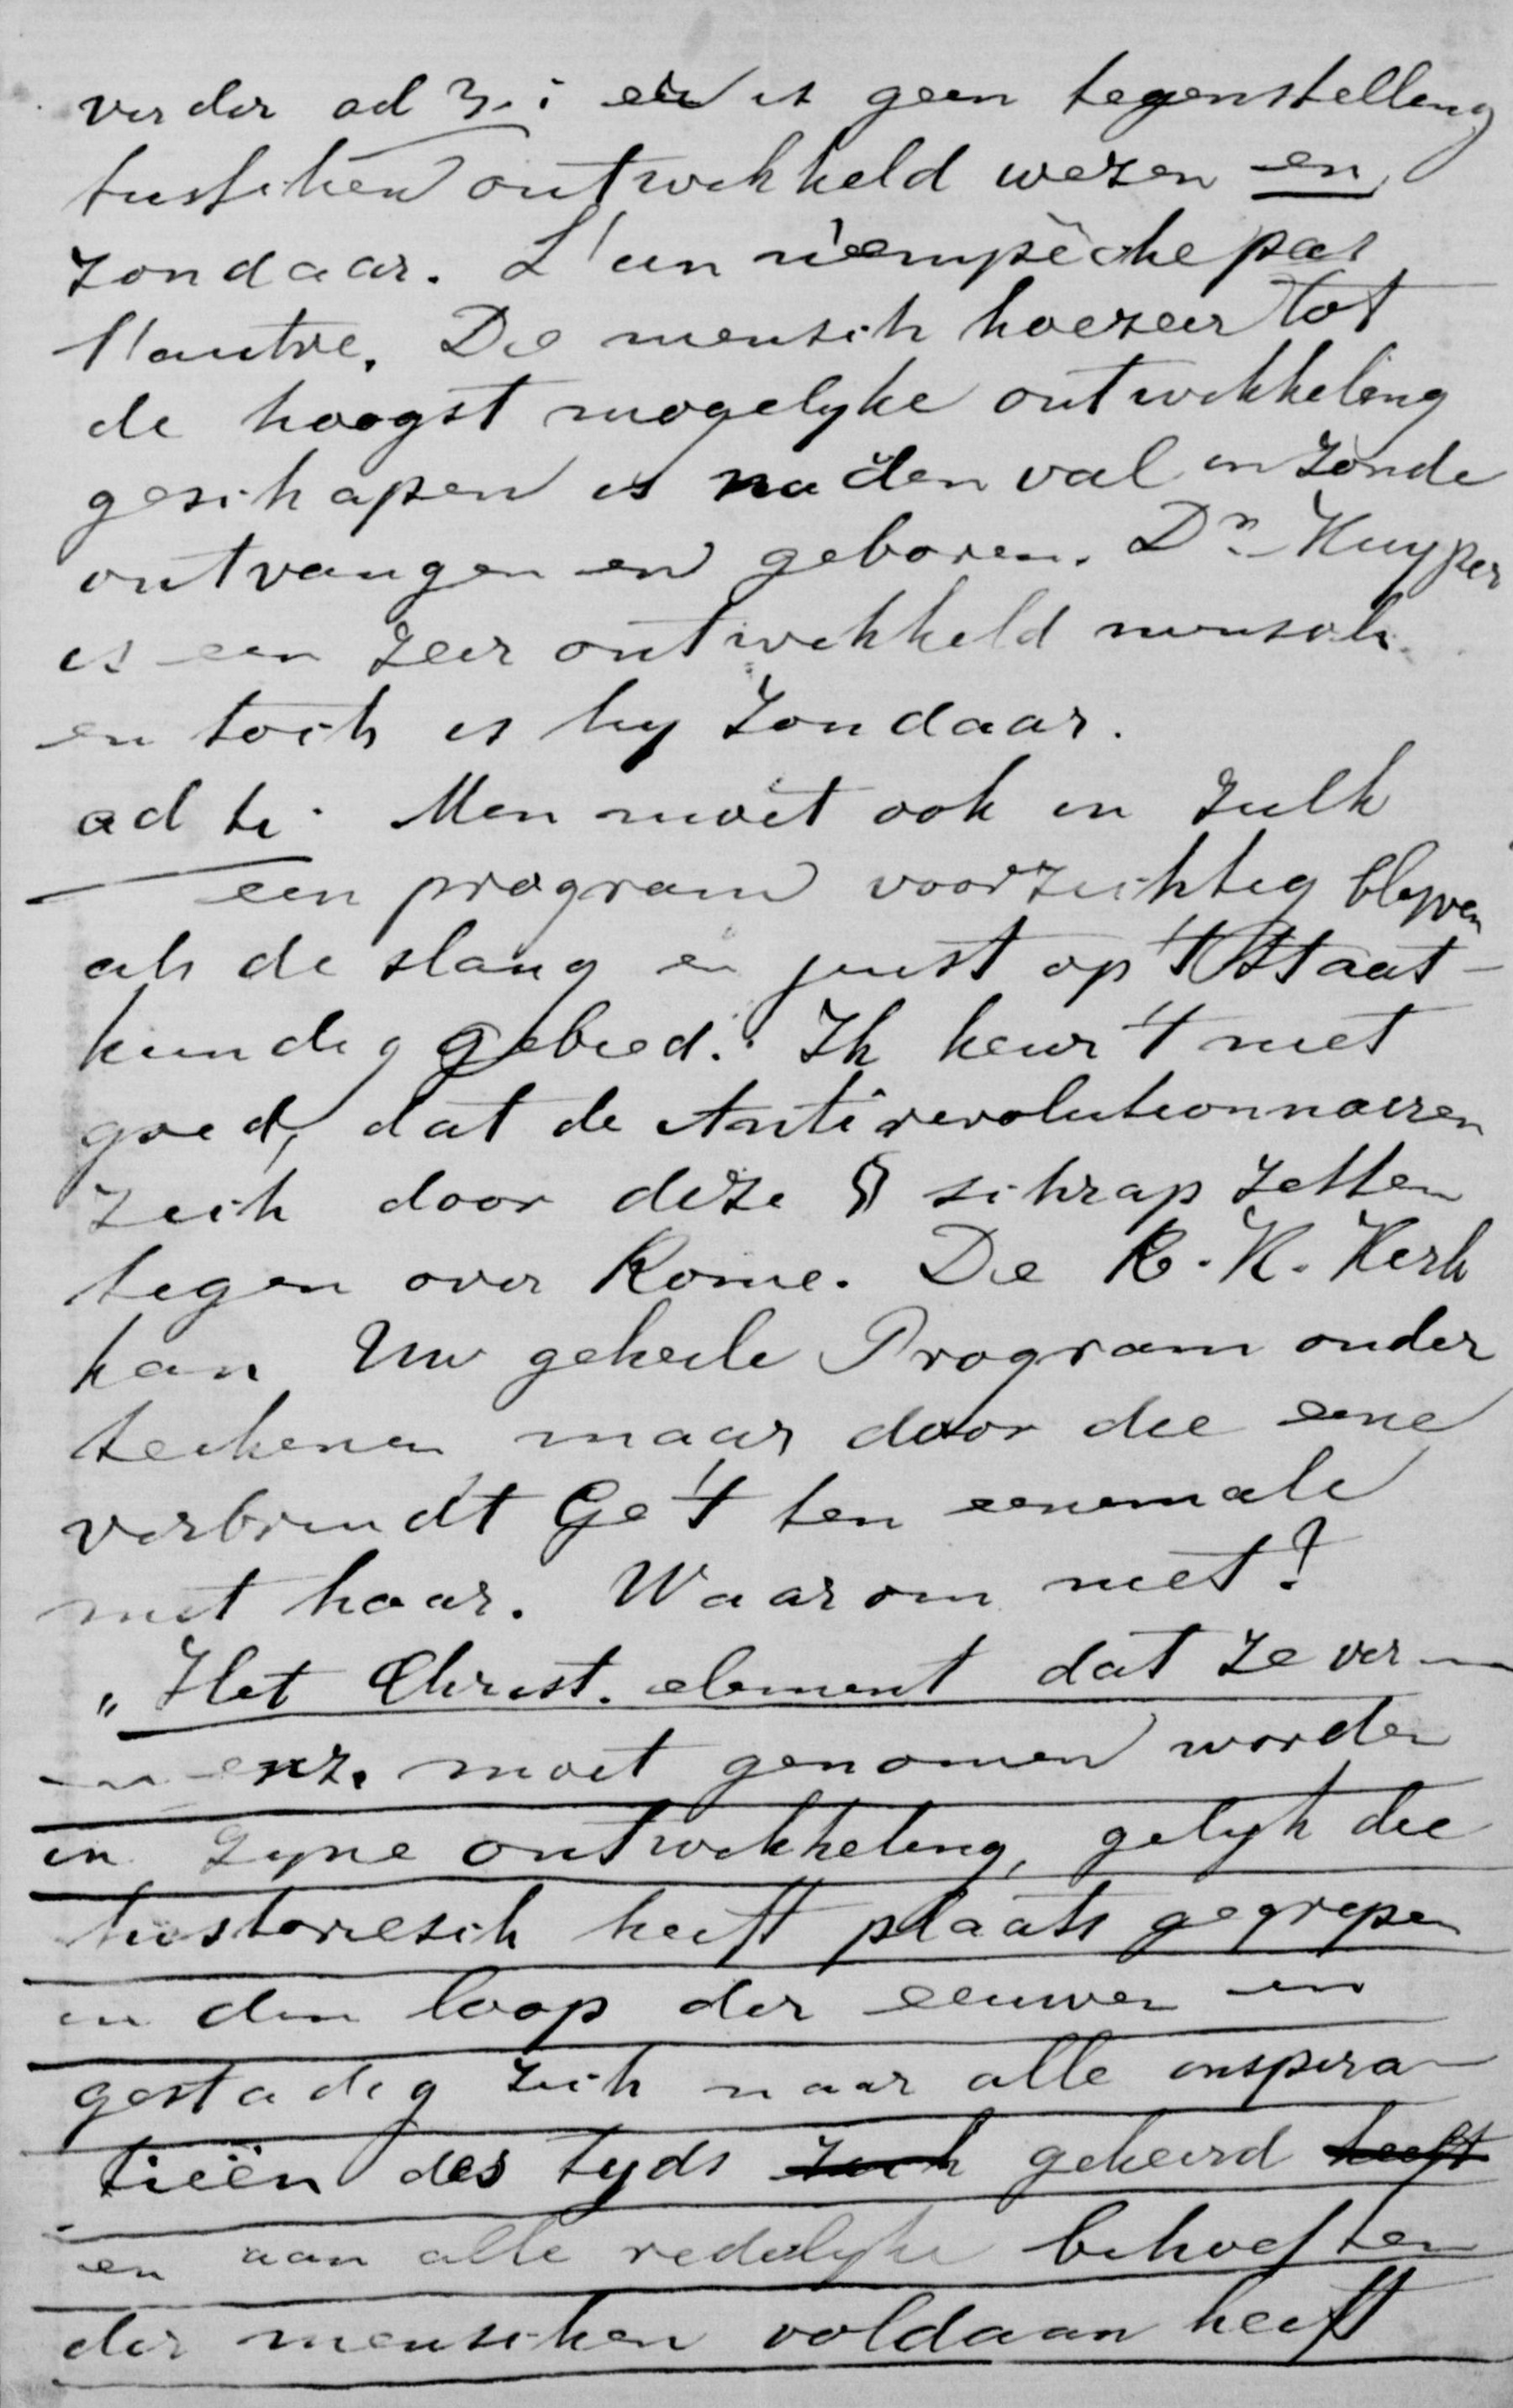 verder ad 3.: er is geen tegenstelling
tusschen ontwikkeld wezen en
zondaar. L'un n'empêche pas
l'autre. De mensch hoezeer tot
de hoogst mogelyke ontwikkeling
geschapen is na den val in zonde
ontvangen en geboren. Dr. Kuyper
is een zeer ontwikkeld mensch
en toch is hy zondaar.
ad Men moet ook in zulk
een program voorzichtig blyven
als de slang en juist op 't Staat-
kundig gebied. Ik keur 't niet
goed, dat de Antirevolutionnairen
zich door deze § schrap zetten
tegen over Rome. De R. K. Kerk
kan Uw geheele Program onder
teekenen maar door die eene
verbruidt Ge 't ten eenemale
met haar. Waarom niet?
„Het Christ. element dat ze ver-
enz. moet genomen worden
in zyne ontwikkeling, gelyk die
historiesch heeft plaats gegrepen
in den loop der eeuwen en
gestadig zich naar alle inspira-
tieën des tyds zich gekeerd heeft
en aan alle redelyke behoeften
der menschen voldaan heeft